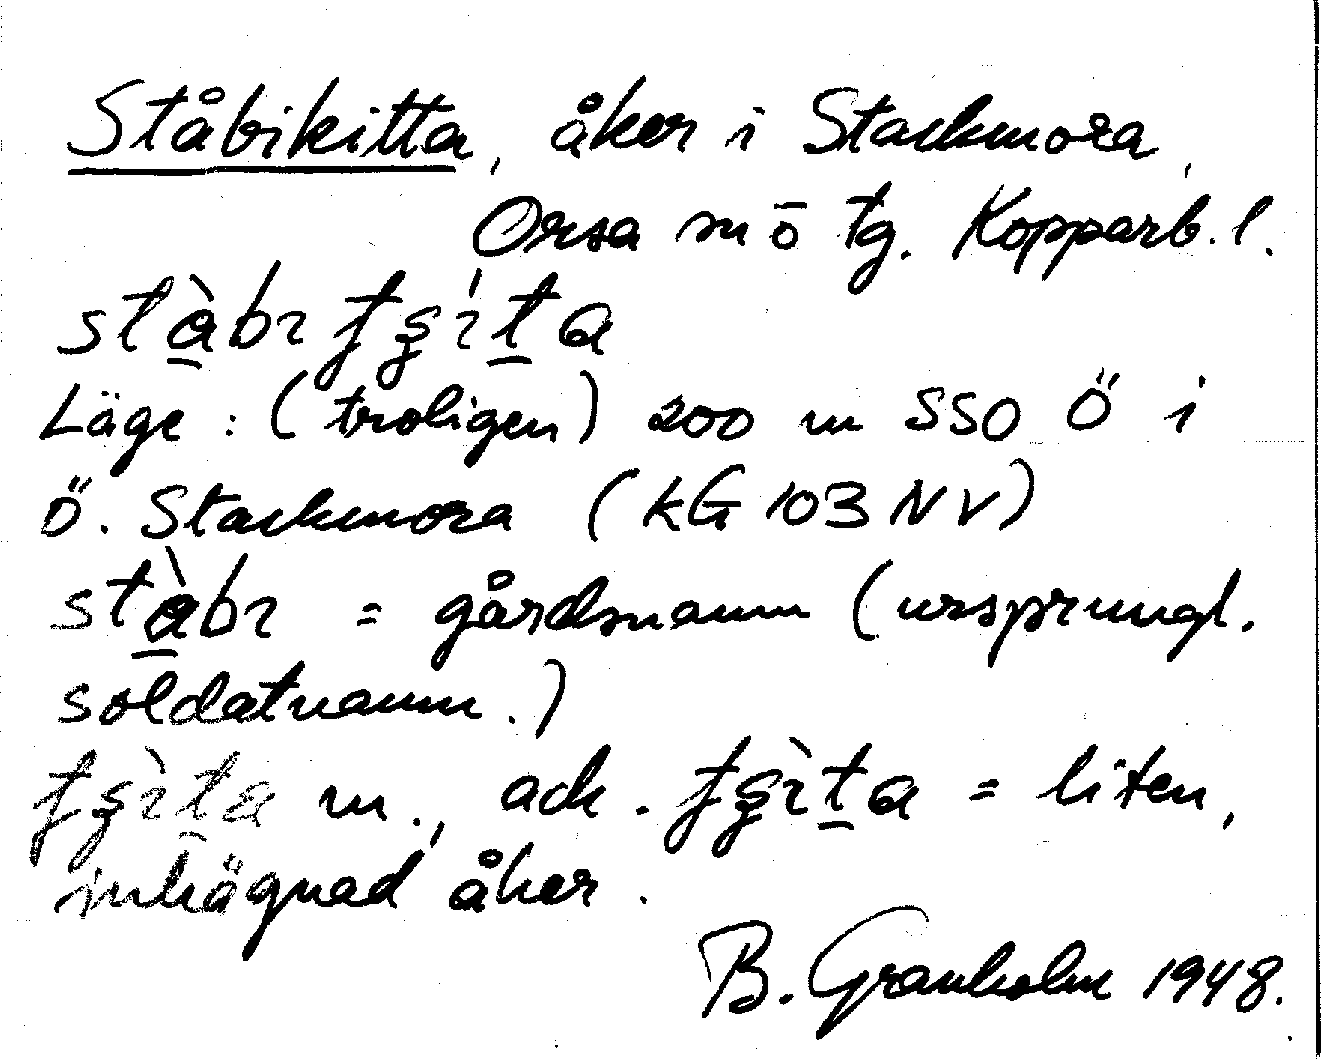 Ståbikitta, åker i Stackmora,
Orsa sn Ö tg. Kopparb. l.
Läge : (troligen) 200 m SSO Ö i
Ö. Stackmora (KG 103 NV)
= gårdsnamn (ursprungl.
soldatnamn.)
m., ack. = liten,
inhägnad åker.
B. Granholm 1948.